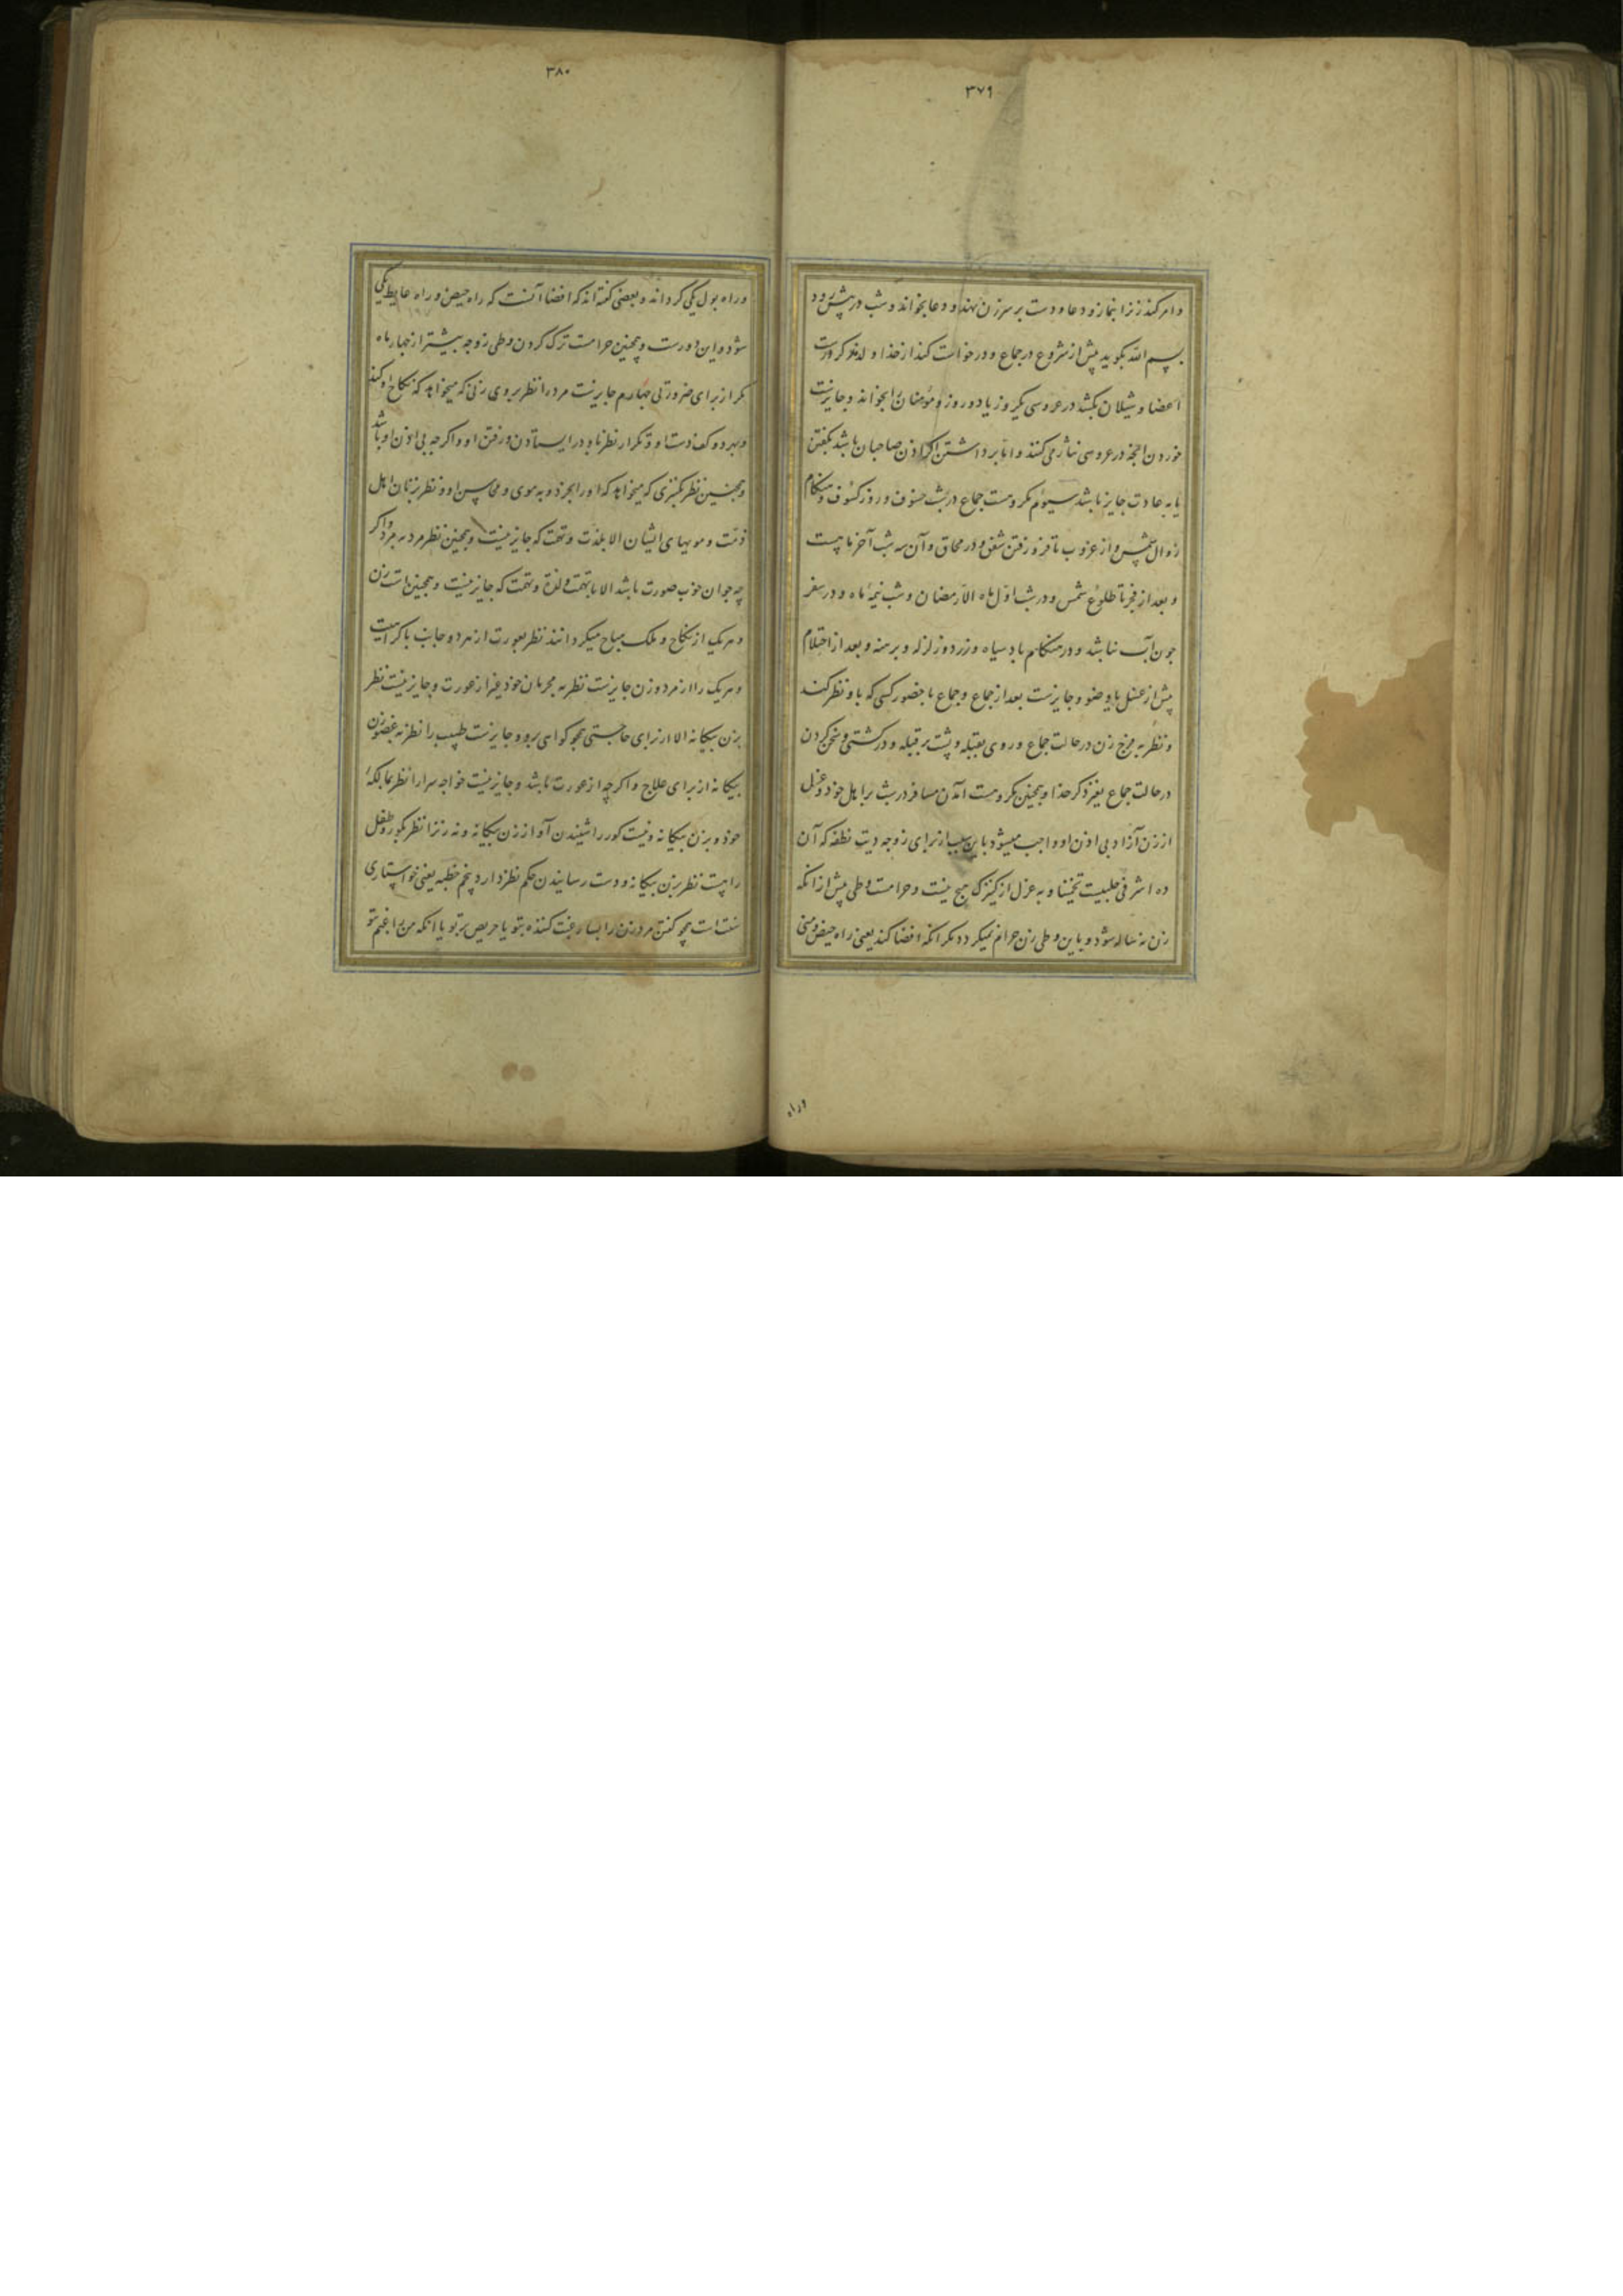 ۳۷۹
وامر کند زنرا بنماز و دعا و دست بر سر زن نهد و دعا بخواند و شب در پیش رود
بسم الله بگوید پیش از شروع در جماع و درخواست کند از خذا ولد مذکر درست
اعضا و شیلان بکشد در عروسی یکروز یا دو روز و مؤمنان را بخواند و جایزست
خوردن آنچه در عروسی نثار می کنند و اما برداشتن اگر اذن صاحبان باشد بگفتن
یا به عادت جایز باشد سیوم مکروهست جماع در شب خسوف و روز کسوف و هنگام
زوال شمس و از غروب تا فرو رفتن شفق و در محاق و آن سه شب آخر ماهست
و بعد از فجر تا طلوع شمس و در شب اول ماه الا رمضان و شب نیمهٔ ماه و در سفر
چون آب نباشد و در هنگام باد سیاه و زرد و زلزله و برهنه و بعد از احتلام
پیش از غسل یا وضو و جایزست بعد از جماع و جماع با حضور کسی که باو نظر کند
و نظر به فرج زن در حالت جماع و روی بقبله و پشت بر قبله و در کشتی و سخن کردن
در حالت جماع بغیر ذکر خذا و همچنین مکروهست آمدن مسافر در شب بر اهل خود و عزل
از زن آزاد بی اذن او و واجب میشود باین سبب از برای زوجه دیت نطفه که آن
ده اشرفی طلیست تخمینا و به عزل از کنیزک هیچ نیست و حرامست وطی پیش از آنکه
زن نه ساله شود و باین وطی زن حرام نمیکردد مکر آنکه افضا کند یعنی راه حیض و منی
وراه
۳۸۰
و راه بول یکی کرداند و بعضی گفته اند که افضا آنست که راه حیض و راه غایط یکی
شود و این دورست و همچنین حرامست ترک کردن وطی زوجه بیشتر از چهار ماه
مکر از برای ضرورتی چهارم جایزست مرد را نظر بروی زنی که میخواهد که نکاح او کند
و بهر دو کف دست او و تکرار نظر باو در ایستادن و رفتن او و اگر چه بی اذن او باشد
و همچنین نظر بکنیزی که میخواهد که او را بخرد و به موی و محاسن او و نظر بزنان اهل
ذمت و مویهای ایشان الا بلذت و تهمت که جایز نیست و همچنین نظر مرد به مرد و اگر
چه جوان خوب صورت باشد الا با تهمت و لذة و تهمت که جایز نیست و همچنین است زن
و هریک از نکاح و ملک مباح میکردانند نظر بعورت از هر دو جانب با کراهیت
و هریک را از مرد و زن جایزست نظر به محرمان خود غیر از عورت و جایز نیست نظر
بزن بیکانه الا از برای حاجتی همچو کواهی برو و جایزست طبیب را نظر به عضو زن
بیکانه از برای علاج و اگر چه از عورت باشد و جایز نیست خواجه سرا را نظر بمالکهٔ
خود و بزن بیکانه و نیست کور را شنیدن آواز زن بیکانه و نه زنرا نظر بکور و طفل
راهست نظر بزن بیکانه و دست رسانیدن حکم نظر دارد پنجم خطبه یعنی خواستاری
سنت است همچو گفتن مرد زن را بسا رغبت کننده بتو یا حریص بر تو یا آنکه من راغبم بتو